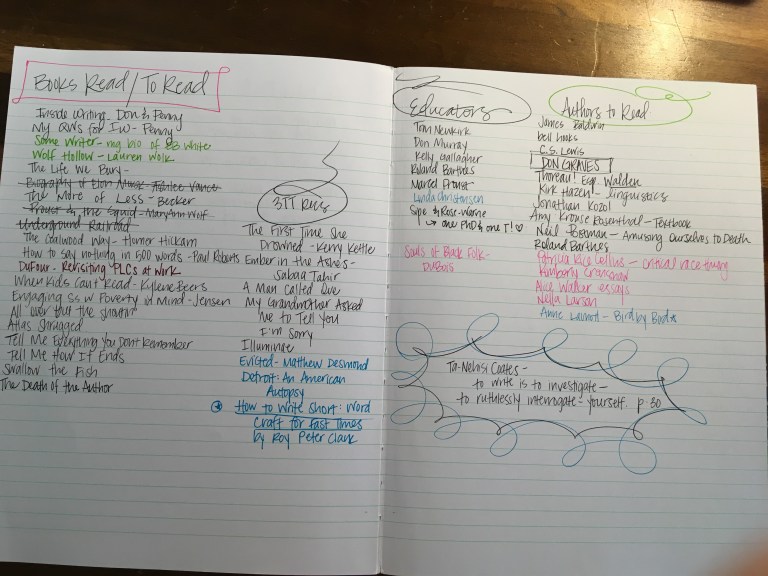 Books Read/To Read
Inside Writing - Don & Penny
My QWs for IW - Penny
Some Writer - mg bio of EB White
Wolf Hollow - Lauren Wolk
The Life We Bury -
Biography of Elon Musk - Ashlee Vance
The More of Less - Becker
Proust & the Squid - MaryAnn Wolf
Underground Railroad
The Coalwood Way - Homer Hickam
How to say nothing in 500 words - Paul Roberts
DuFour - Revisiting PLCs at Work
When Kids Can't Read - Kylene Beers
Engaging Ss w Poverty in Mind - Jensen
All over but the shoutin'
Atlas Shrugged
Tell Me Everything You Don't Remember
Tell Me How It Ends
Swallow the Fish
The Death of the Author
3TT Recs
The First Time She
Drowned - Kerry Kletter
Ember in the Ashes -
Sabaa Tahir
A Man Called Ove
My Grandmother Asked
Me to Tell You
I'm Sorry
Illuminae
Evicted - Matthew Desmond
Detroit: An American
Autopsy
How to Write Short: Word
Craft for Fast Times
by Roy Peter Clark
Educators
Tom Newkirk
Don Murray
Kelly Gallagher
Roland Barthes
Marcel Proust
Linda Christensen
one PhD & one T!
Souls of Black Folk -
DuBois
Authors to Read
James Baldwin
bell hooks
C.S. Lewis
DON GRAVES
Thoreau! Esp. Walden
Kirk Hazen! - linguistics
Jonathan Kozol
Amy Krouse Rosenthal - Textbook
Neil Postman - Amusing Ourselves to Death
Roland Barthes
- critical race theory
Kimberly Crenshaw
Alice Walker essays
Nella Larson
Anne Lamott - Bird by Bird
Ta-Nehisi Coates -
to write is to investigate -
to ruthlessly interrogate - yourself. p. 30